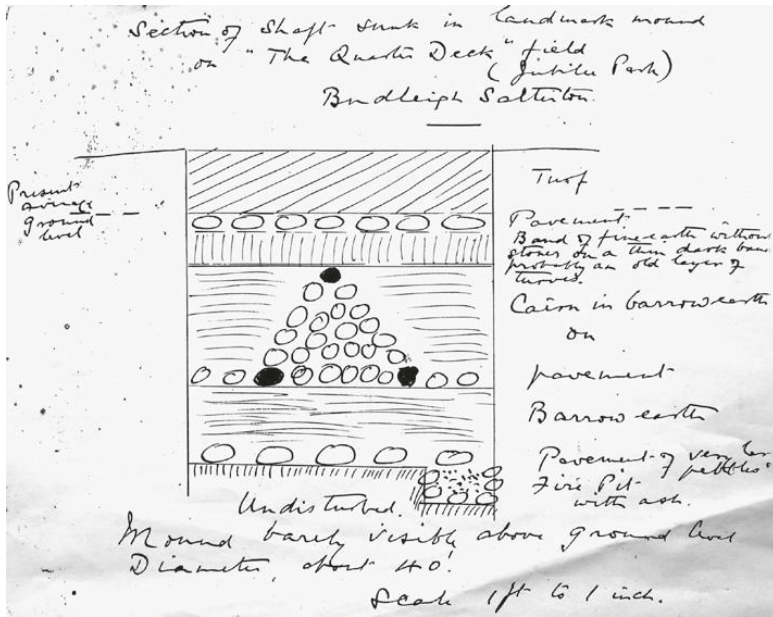 Section of Shaft sunk in landmark mound
on "The Quarter Deck" field
(Jubilee Park)
Budleigh Salterton.
Present
average
ground
level
Turf
Pavement
Band of fine earth without
stones on a thin dark band
probably an old layer of
turves.
Cairn in barrow earth
on
pavement
Barrow earth
Pavement of very
pebbles
Fire Pit
with ash.
Undisturbed.
Mound barely visible above ground level
Diameter, about 40'.
Scale 1 ft to 1 inch.